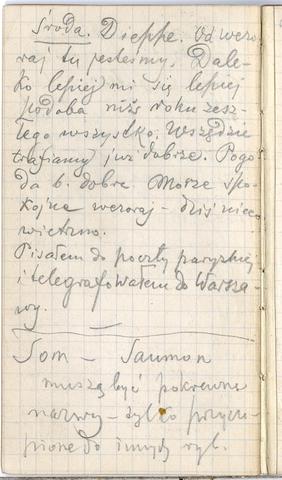 Środa. Dieppe. Od wczo-
raj tu jesteśmy. Dale-
ko lepiej mi się lepiej
podoba niż roku zesz-
łego wszystko. Wszędzie
trafiamy już dobrze. Pogo-
da b. dobra. Morze spo-
kojne wczoraj – dziś nieco
wietrzno.
Pisałem do poczty paryskiej
i telegrafowałem do Warsza-
wy.
Som – Saumon
muszą być pokrewne
nazwy – tylko przycze-
pione do innych ryb.